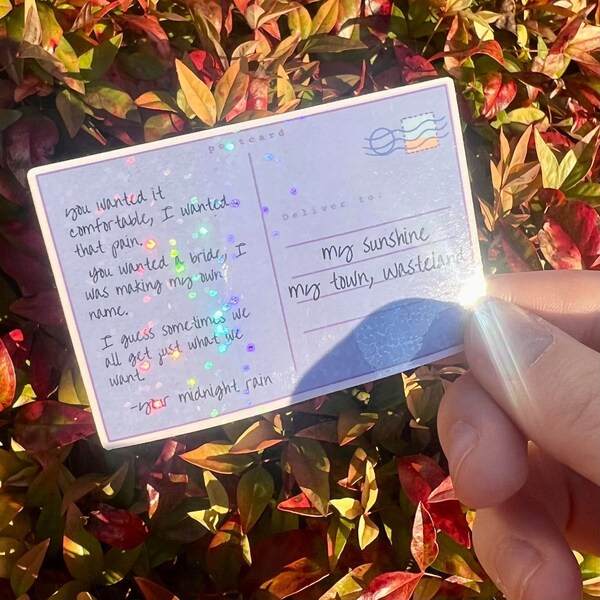 postcard
you wanted it
comfortable, I wanted
that pain.
you wanted a bride, I
was making my own
name.
I guess sometimes we
all get just what we
want.
-your midnight rain
Deliver to:
my sunshine
my town, wasteland